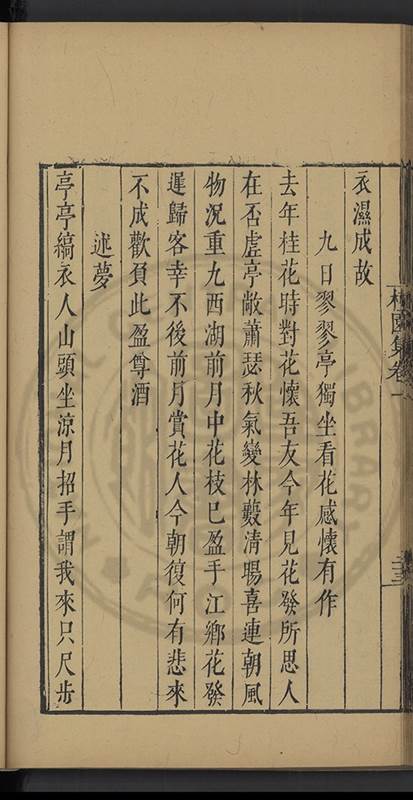 衣濕成故
九日翏翏亭獨坐看花感懷有作
去年桂花時對花懷吾友今年見花發所思人
在否虛亭敞蕭瑟秋氣變林藪清暘喜連朝風
物況重九西湖前月中花枝已盈手江鄉花發
遲歸客幸不後前月賞花人今朝復何有悲來
不成歡負此盈尊酒
述夢
亭亭縞衣人山頭坐涼月招手謂我來只尺步
園集卷一